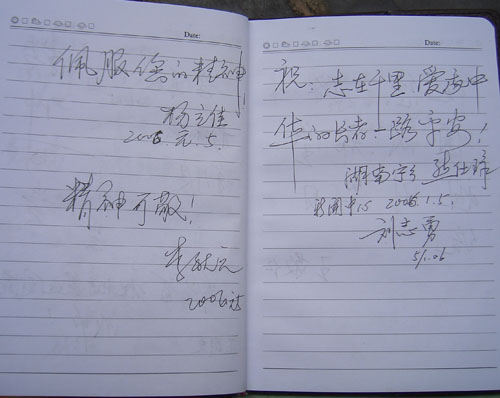 Date:
佩服您的精神!
杨立佳
2006.元.5.
精神可敬!
2006元5
Date:
祝:志在千里 爱我中
华的长者一路平安!
湖南宁乡
2006.1.5.
刘志勇
5/1.06